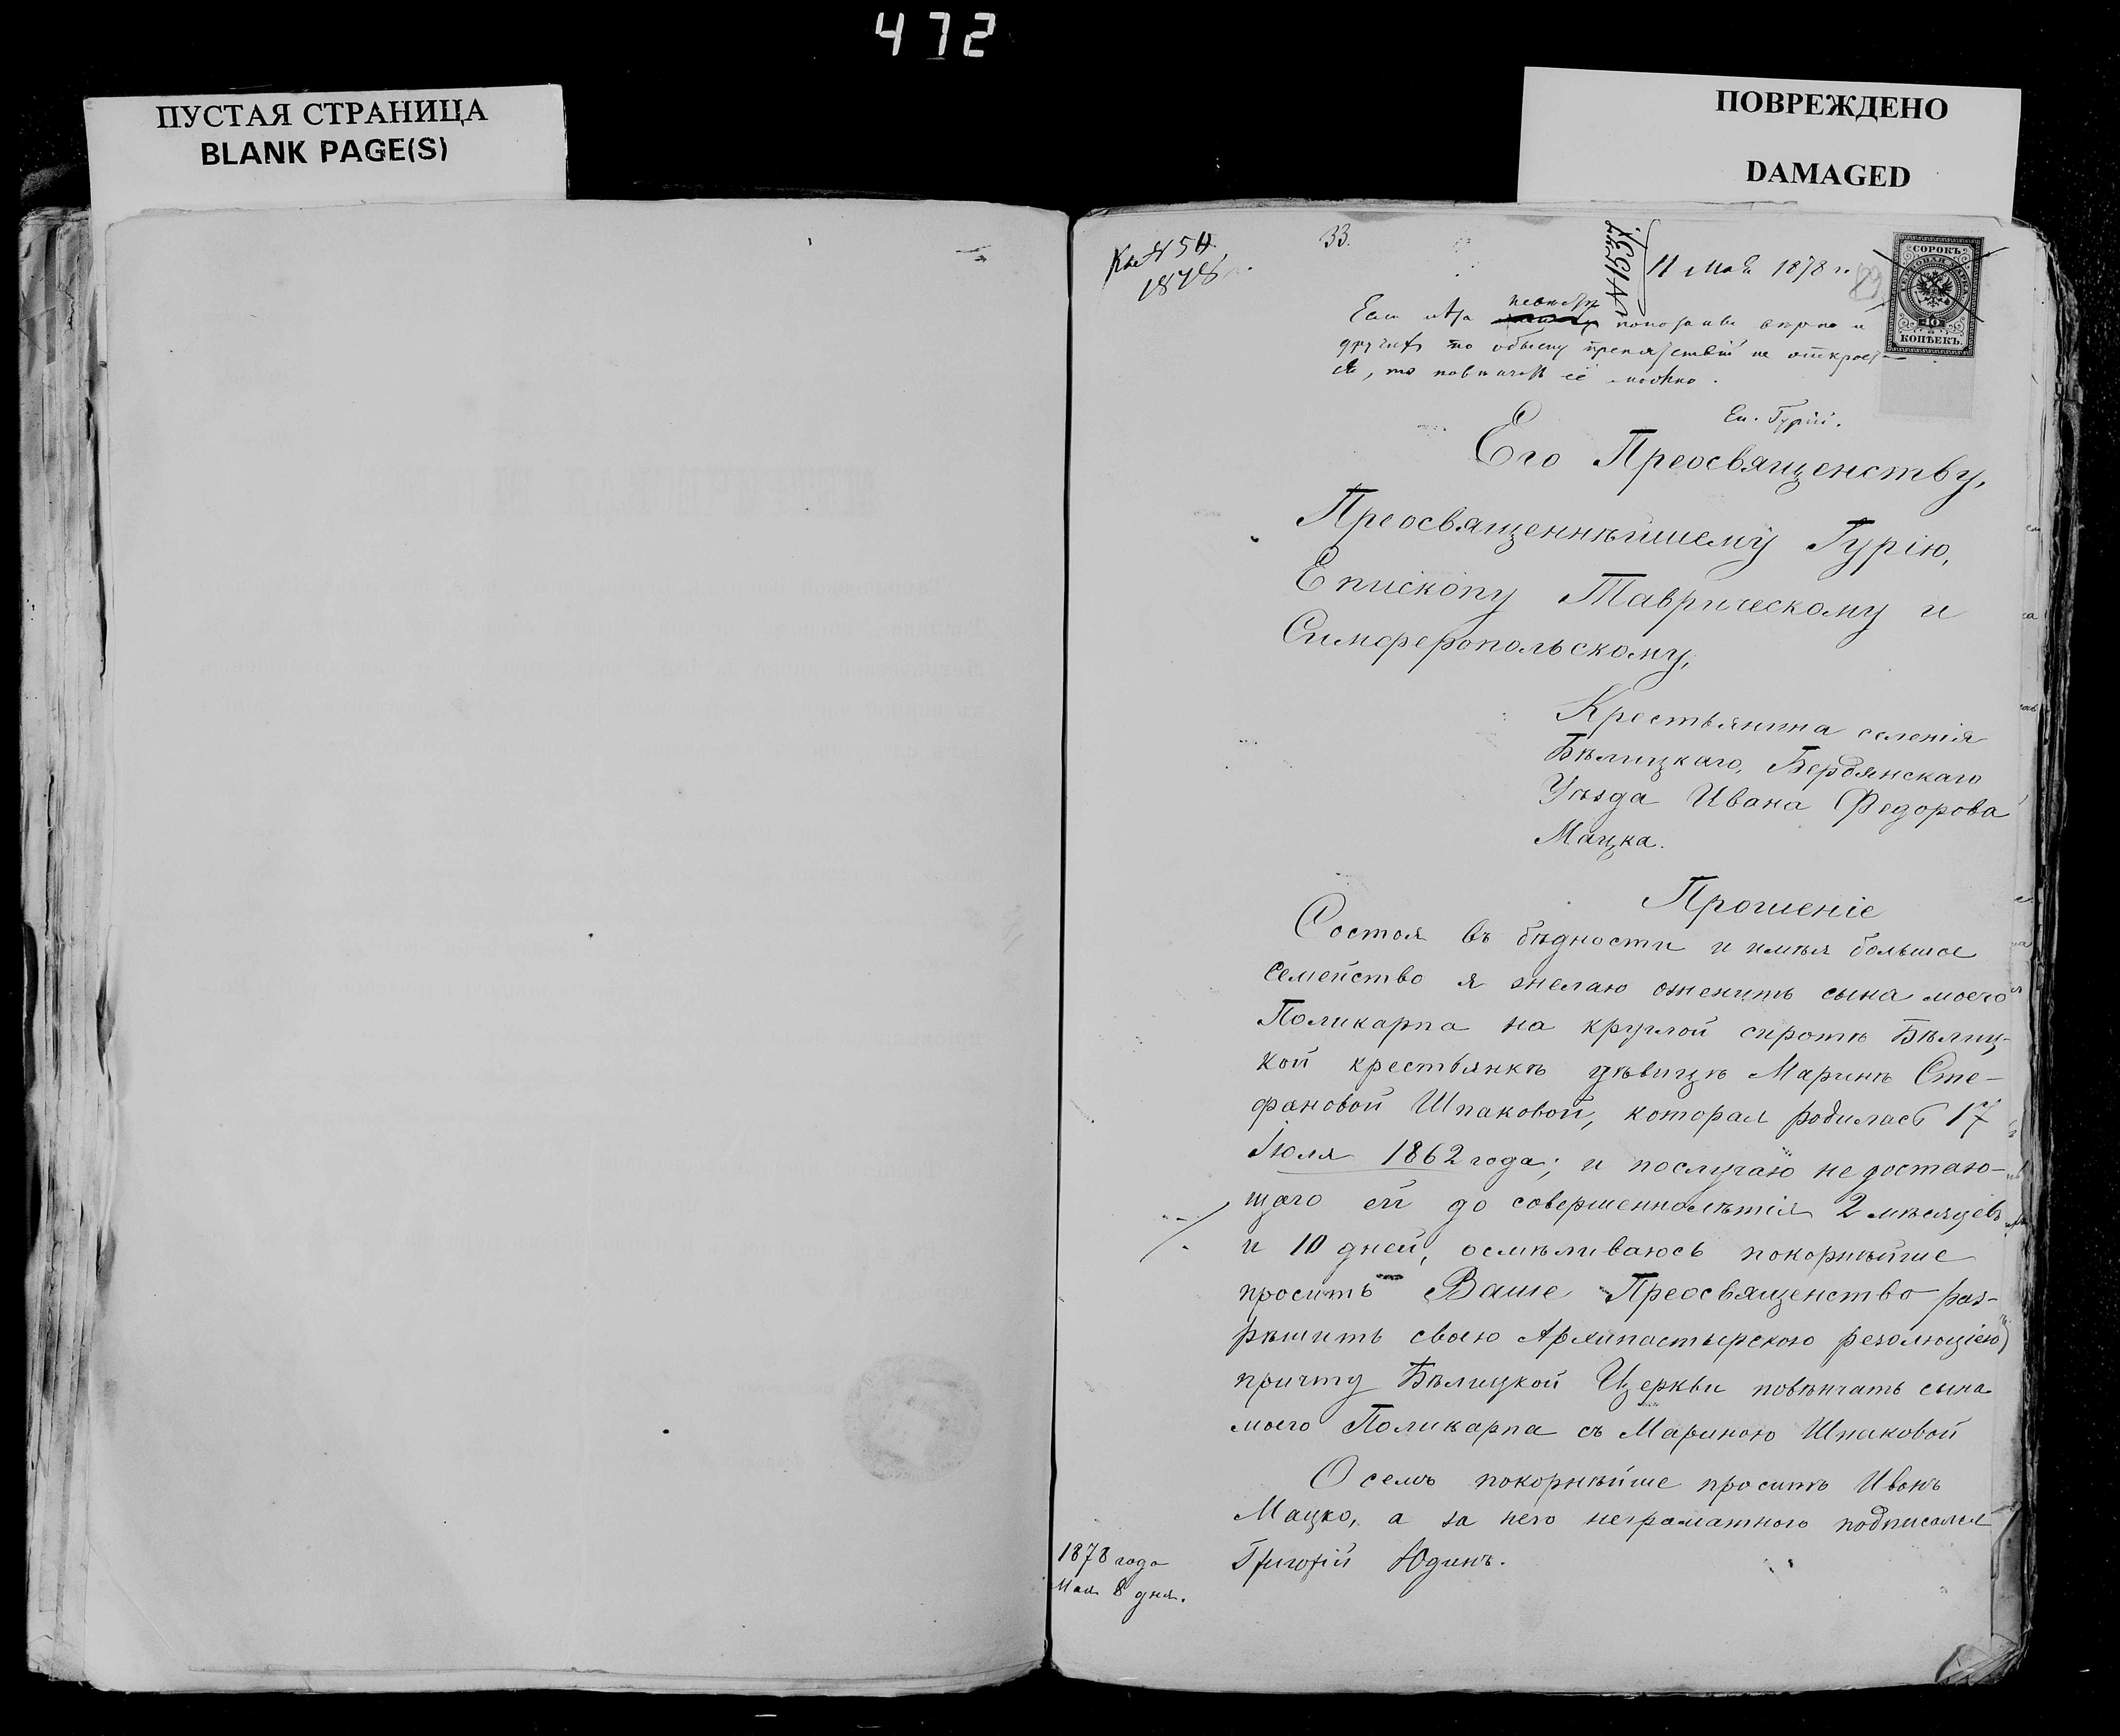 472
ПУСТАЯ СТРАНИЦА
BLANK PAGE(S)
ПОВРЕЖДЕНО
DAMAGED
Къ № 54
1878 г.
33.
11 Мая 1878 г.
89
СОРОКЪ
КОПѢЕКЪ.
Если лѣта невѣсты показаны вѣрно и
другихъ по обыску препятствій не откроет-
ся, то повѣнчать её можно.
Еп. Гурій.
Его Преосвященству,
Преосвященнѣйшему Гурію,
Епископу Таврическому и
Симферопольскому,
Крестьянина селенія
Бѣлицкаго, Бердянскаго
Уѣзда Ивана Федорова
Мацка.
Прошеніе
Состоя въ бѣдности и имѣя большое
семейство я желаю оженить сына моего
Поликарпа на круглой сиротѣ Бѣлиц-
кой крестьянкѣ дѣвицѣ Маринѣ Сте-
фановой Шпаковой, которая родилась 17
Іюля 1862 года; и послучаю недостаю-
щаго ей до совершеннолѣтія 2 мѣсяцевъ
и 10 дней, осмѣливаюсь покорнѣйше
просить Ваше Преосвященство раз-
рѣшить своею Архипастырскою резолюціею
причту Бѣлицкой Церкви повѣнчать сына
моего Поликарпа съ Мариною Шпаковой
О семъ покорнѣйше проситъ Иванъ
Мацко, а за него неграматного подписался
Григорій Юдинъ.
1878 года
Мая 8 дня.